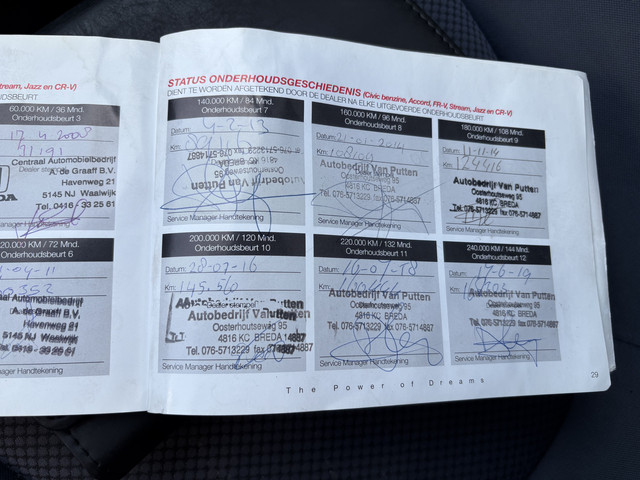 Stream, Jazz en CR-V)
60.000 KM / 36 Mnd.
Onderhoudsbeurt 3
17 4 2008
Centraal Automobielbedrijf
A. de Graaf B.V.
Havenweg 21
5145 NJ Waalwijk
Tel. 0416 - 33 25 61
Service Manager Handtekening
20.000 KM / 72 Mnd.
Onderhoudsbeurt 6
-04-11
Automobielbedrijf
A. de Graaf B.V.
Havenweg 21
5145 NJ Waalwijk
Tel. 0416 - 33 25 61
Manager Handtekening
STATUS ONDERHOUDSGESCHIEDENIS (Civic benzine, Accord, FR-V, Stream, Jazz en CR-V)
DIENT TE WORDEN AFGETEKEND DOOR DE DEALER NA ELKE UITGEVOERDE ONDERHOUDSBEURT
140.000 KM / 84 Mnd.
Onderhoudsbeurt 7
Datum: 4-2-13
Km:
Autobedrijf Van Putten
Service Manager Handtekening
160.000 KM / 96 Mnd.
Onderhoudsbeurt 8
Datum: 21-01-2014
Km:
Autobedrijf Van Putten
Oosterhoutseweg 95
4816 KC BREDA
Tel. 076-5713229 fax 076-5714887
Service Manager Handtekening
180.000 KM / 108 Mnd.
Onderhoudsbeurt 9
Datum: 11-11-14
Km: 124416
Autobedrijf Van Putten
Oosterhoutseweg 95
4816 KC BREDA
Tel. 076-5713229 fax 076-5714887
Service Manager Handtekening
200.000 KM / 120 Mnd.
Onderhoudsbeurt 10
Datum: 28-07-16
Km: 145.560
Autobedrijf Van Putten
Oosterhoutseweg 95
4816 KC BREDA
Tel. 076-5713229 fax 076-5714887
Service Manager Handtekening
220.000 KM / 132 Mnd.
Onderhoudsbeurt 11
Datum: 16-07-18
Km:
Autobedrijf Van Putten
Oosterhoutseweg 95
4816 KC BREDA
Tel. 076-5713229 fax 076-5714887
Service Manager Handtekening
240.000 KM / 144 Mnd.
Onderhoudsbeurt 12
Datum: 17-6-19
Km:
Autobedrijf Van Putten
Oosterhoutseweg 95
4816 KC BREDA
Tel. 076-5713229 fax 076-5714887
Service Manager Handtekening
The Power of Dreams
29